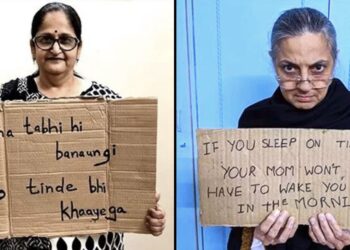 tabhi hi
banaungi
tinde bhi
khaayega
IF YOU SLEEP ON
YOUR MOM WON'T
HAVE TO WAKE YOU
IN THE